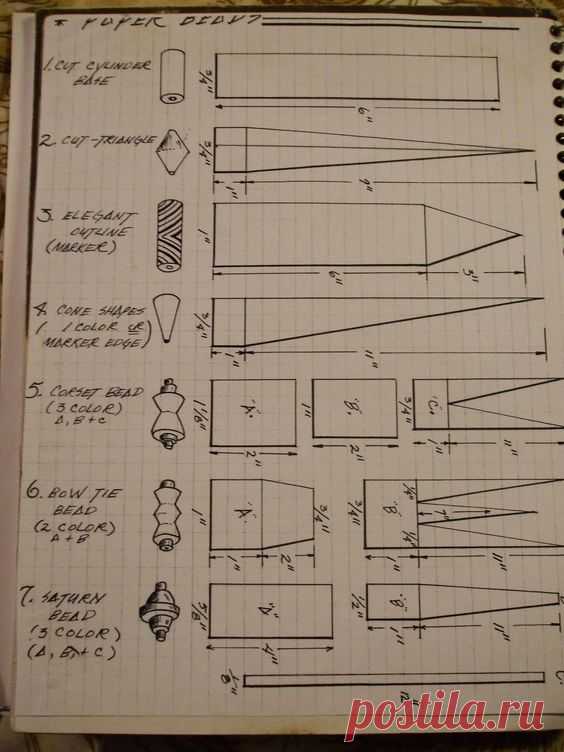 * PAPER BEADS
1. CUT CYLINDER
BASE
3/4"
6"
2. CUT-TRIANGLE
3/4"
1"
9"
3. ELEGANT
CUTLINE
(MARKER)
1"
6"
3"
4. CONE SHAPES
(1 COLOR OR
MARKER EDGE)
3/4"
1"
11"
5. CORSET BEAD
(3 COLOR)
A, B + C
1 1/8"
A.
2"
1"
B.
2"
3/4"
C.
1"
11"
6. BOW TIE
BEAD
(2 COLOR)
A + B
1"
A.
3/4"
1"
2"
3/4"
B.
1/4"
1/4"
7"
1"
11"
7. SATURN
BEAD
(3 COLOR)
(A, B, + C)
5/8"
A.
4"
1/2"
B.
1"
11"
1/8"
12"
postila.ru